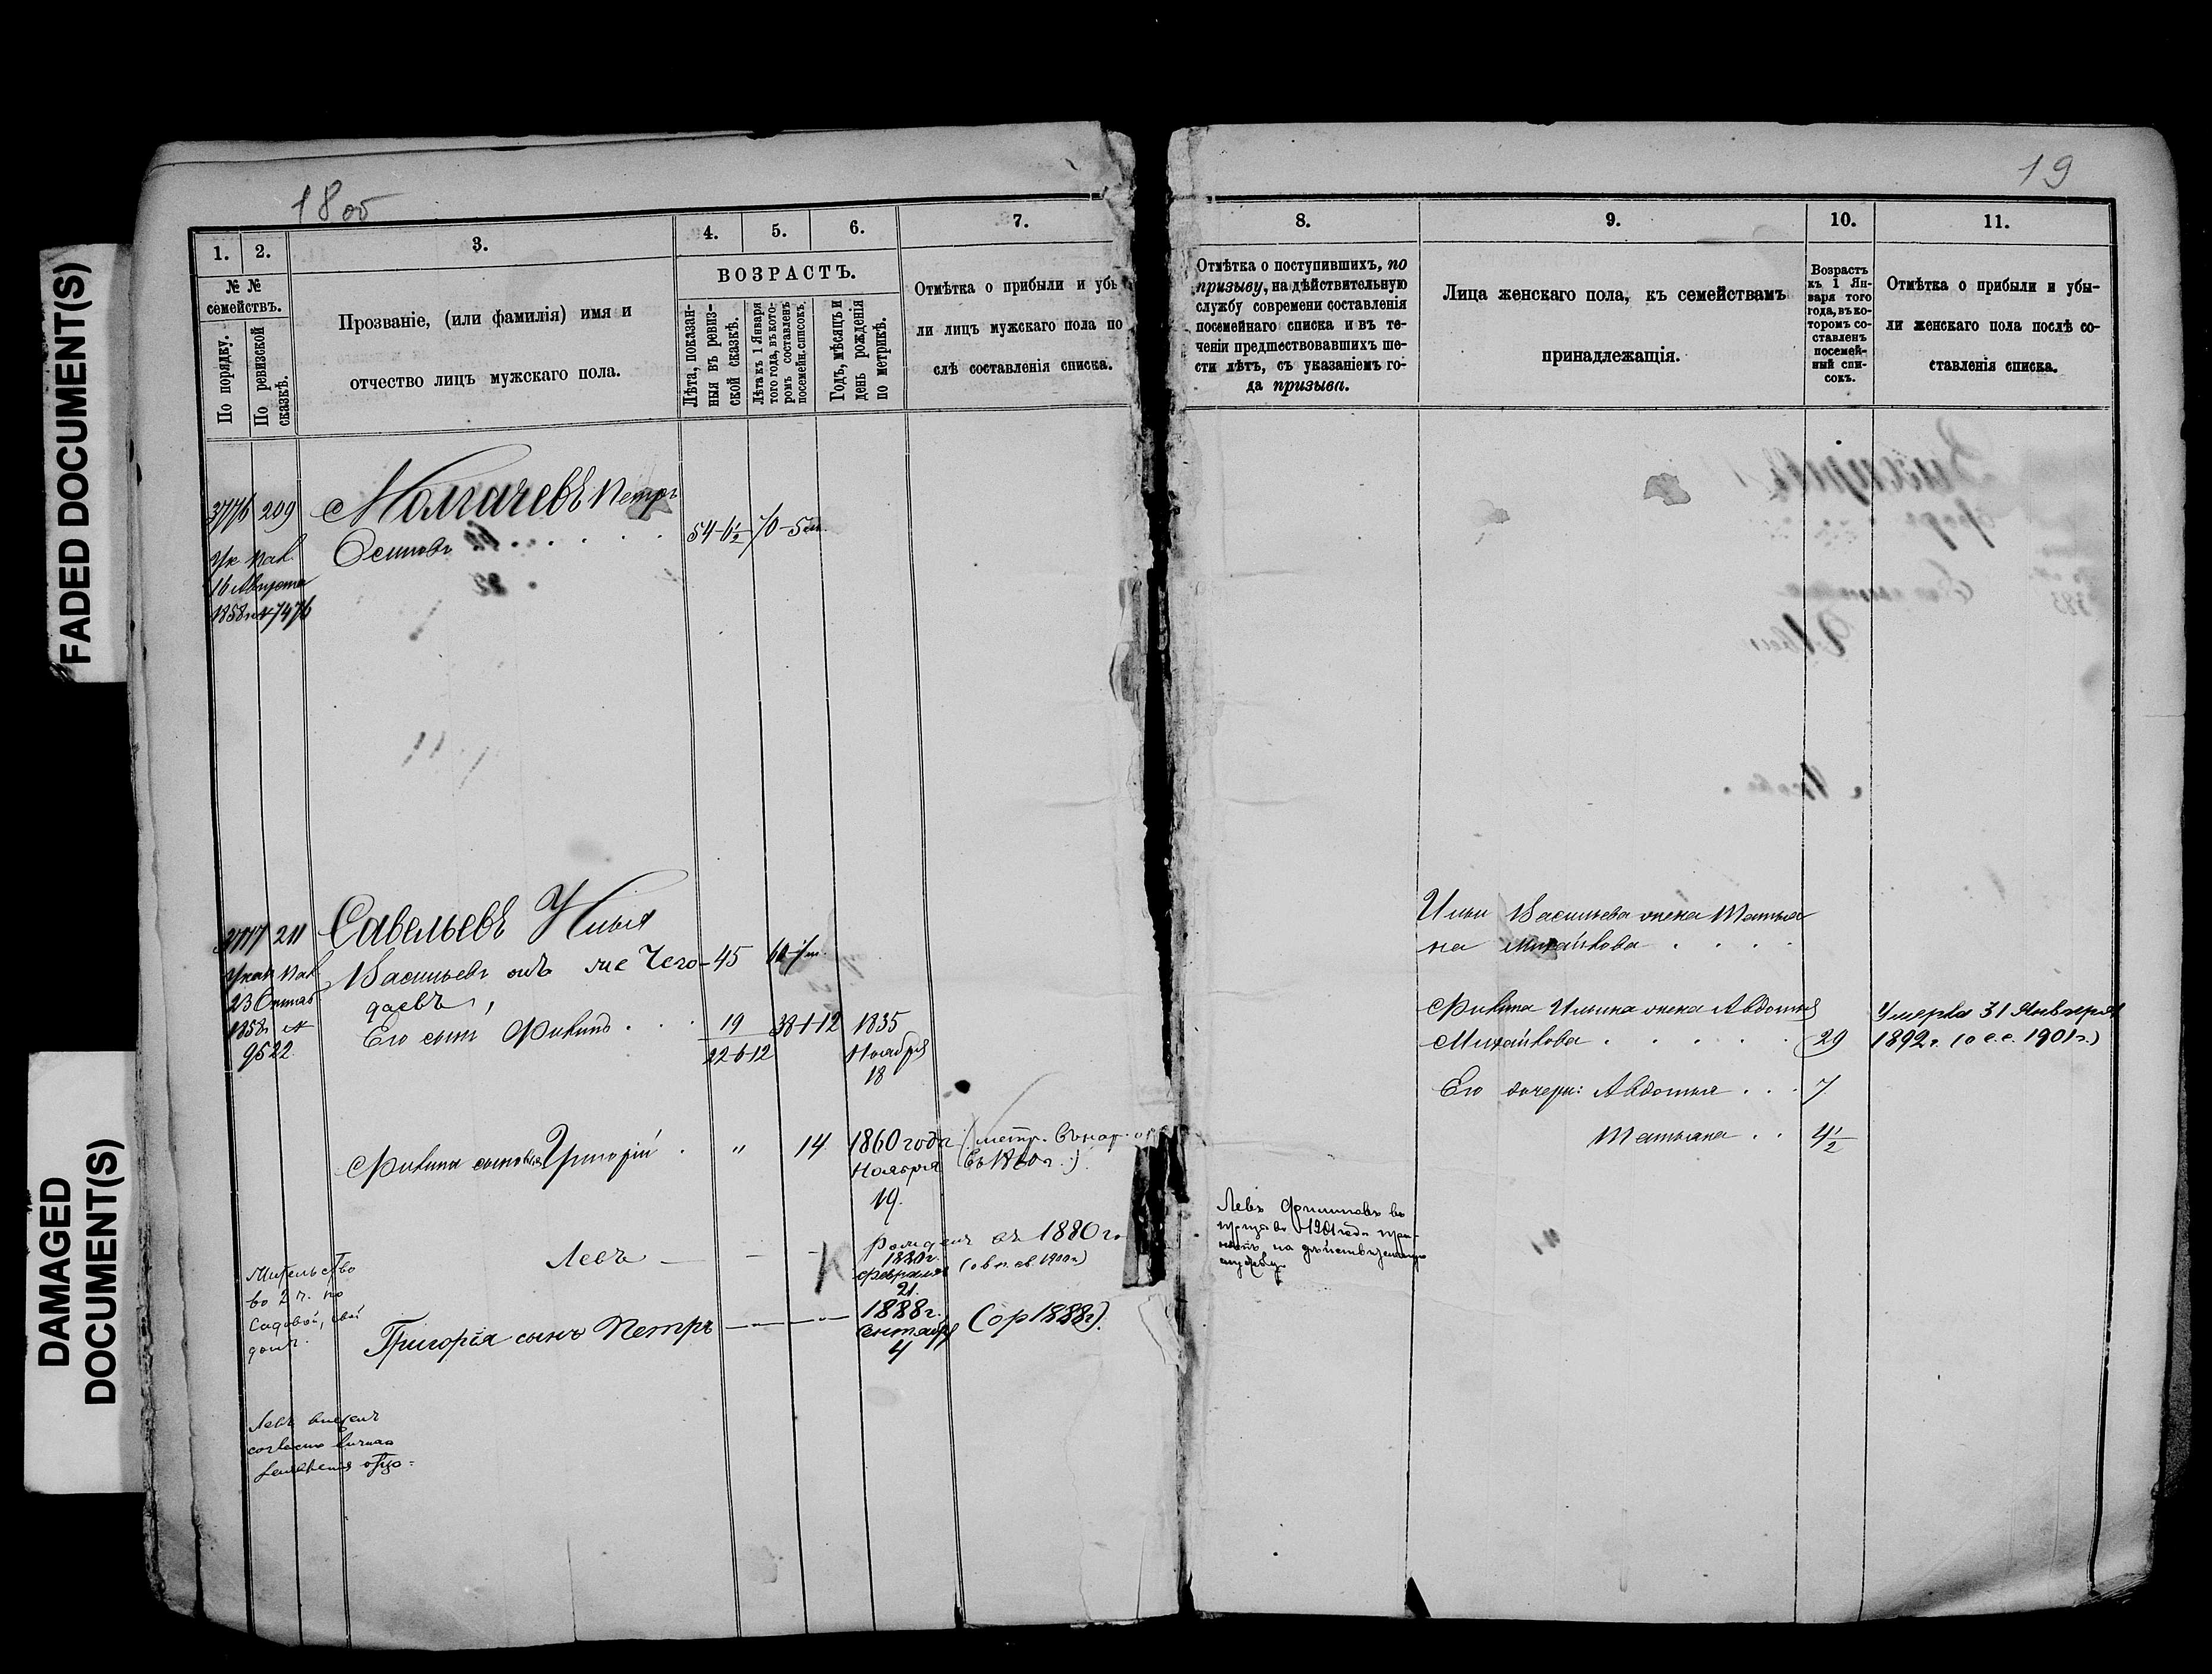 FADED DOCUMENT(S)
DAMAGED
DOCUMENT(S)
18 об
1.
2.
3.
4.
5.
6.
7.
№ №
семействъ.
По порядку.
По ревизской
сказкѣ.
Прозваніе, (или фамилія) имя и
отчество лицъ мужскаго пола.
ВОЗРАСТЪ.
Лѣта, показан-
ныя въ ревиз-
ской сказкѣ.
Лѣта къ 1 Января
того года, въ кото-
ромъ составленъ
посемейн. списокъ.
Годъ, мѣсяцъ и
день рожденія
по метрикѣ.
Отмѣтка о прибыли и убы
ли лицъ мужскаго пола по
слѣ составленія списка.
3776 209
Молчачевъ Петръ
Осиповъ
54-6½
70-5 м.
Ук. Пал.
16 Августа
1858 г № 7476
211
Савельевъ Илья
Васильевъ онъ же Чего-
даевъ
45
Указ Пал
23 Октяб
1858 г №
9522.
Его сынъ Филипъ
19
22-6-12
38-1-12
1835
Ноября
18
Филипа сыновья Григорій
"
14
1860 года
Ноября
19.
(метр.
въ 1860 г.)
Левъ
рожденъ въ 1880 г.
1880 г.
Февраля
21.
Жительство
во 2 ч. по
Садовой, свой
домъ.
Григорія сынъ Петръ
1888 г.
Сентября
4
(о р 1888 г).
Левъ внесенъ
согласно
заявленія отца
19
8.
9.
10.
11.
Отмѣтка о поступившихъ, по
призыву, на дѣйствительную
службу современи составленія
посемейнаго списка и въ те-
ченіи предшествовавшихъ ше-
сти лѣтъ, съ указаніемъ го-
да призыва.
Лица женскаго пола, къ семействамъ
принадлежащія.
Возрастъ
къ 1 Ян-
варя того
года, въ ко-
торомъ со-
ставленъ
посемей-
ный спи-
сокъ.
Отмѣтка о прибыли и убы-
ли женскаго пола послѣ со-
ставленія списка.
Ильи Васильева жена Татья
на Михайлова
Филипа Ильина жена Авдотья
Михайлова
29
Умерла 31 Января
1892 г. (о с.с. 1901 г.)
Его дочери: Авдотья
7
Татьяна
4½
Левъ Филиповъ въ
призывъ 1901 года при-
нятъ на дѣйствительную
службу.